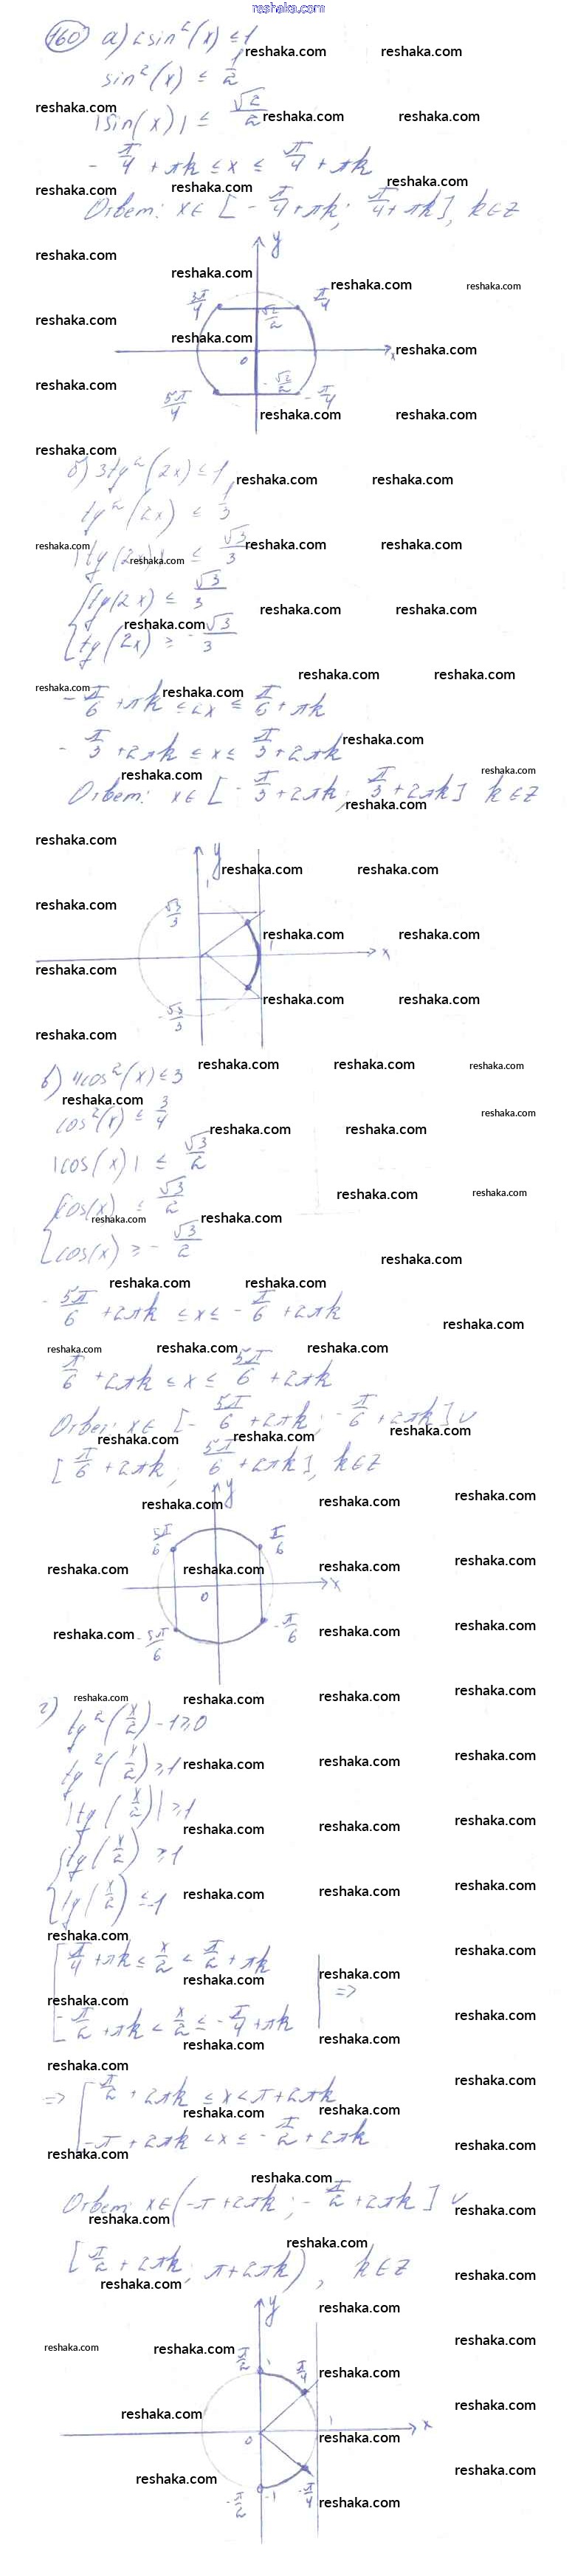 reshaka.com
160) а) 2sin²(x) ≤ 1
sin²(x) ≤ 1/2
|sin(x)| ≤ √2/2
-π/4 + πk ≤ x ≤ π/4 + πk
Ответ: x∈ [-π/4+πk; π/4+πk], k∈Z
y
3π/4 π/4
√2/2
0 x
-√2/2
5π/4 -π/4
б) 3tg²(2x) ≤ 1
tg²(2x) ≤ 1/3
|tg(2x)| ≤ √3/3
{tg(2x) ≤ √3/3
{tg(2x) ≥ -√3/3
-π/6 + πk ≤ 2x ≤ π/6 + πk
-π/3 + 2πk ≤ x ≤ π/3 + 2πk
Ответ: x∈ [-π/3+2πk; π/3+2πk] k∈Z
y
1
√3/3
1 x
-√3/3
в) 4cos²(x) ≤ 3
cos²(x) ≤ 3/4
|cos(x)| ≤ √3/2
{cos(x) ≤ √3/2
{cos(x) ≥ -√3/2
-5π/6 + 2πk ≤ x ≤ -π/6 + 2πk
π/6 + 2πk ≤ x ≤ 5π/6 + 2πk
Ответ: x∈ [-5π/6 + 2πk; -π/6 + 2πk] ∪
[π/6 + 2πk; 5π/6 + 2πk], k∈Z
y
5π/6 π/6
0 x
-5π/6 -π/6
г) tg²(x/2) - 1 ≥ 0
tg²(x/2) ≥ 1
|tg(x/2)| ≥ 1
[tg(x/2) ≥ 1
[tg(x/2) ≤ -1
[π/4 + πk ≤ x/2 < π/2 + πk
=>
[-π/2 + πk < x/2 ≤ -π/4 + πk
=> [π/2 + 2πk ≤ x < π + 2πk
[-π + 2πk < x ≤ -π/2 + 2πk
Ответ: x∈(-π + 2πk; -π/2 + 2πk] ∪
[π/2 + 2πk; π + 2πk), k∈Z
y
π/2 1 π/4
0 1 x
-π/2 -1 -π/4